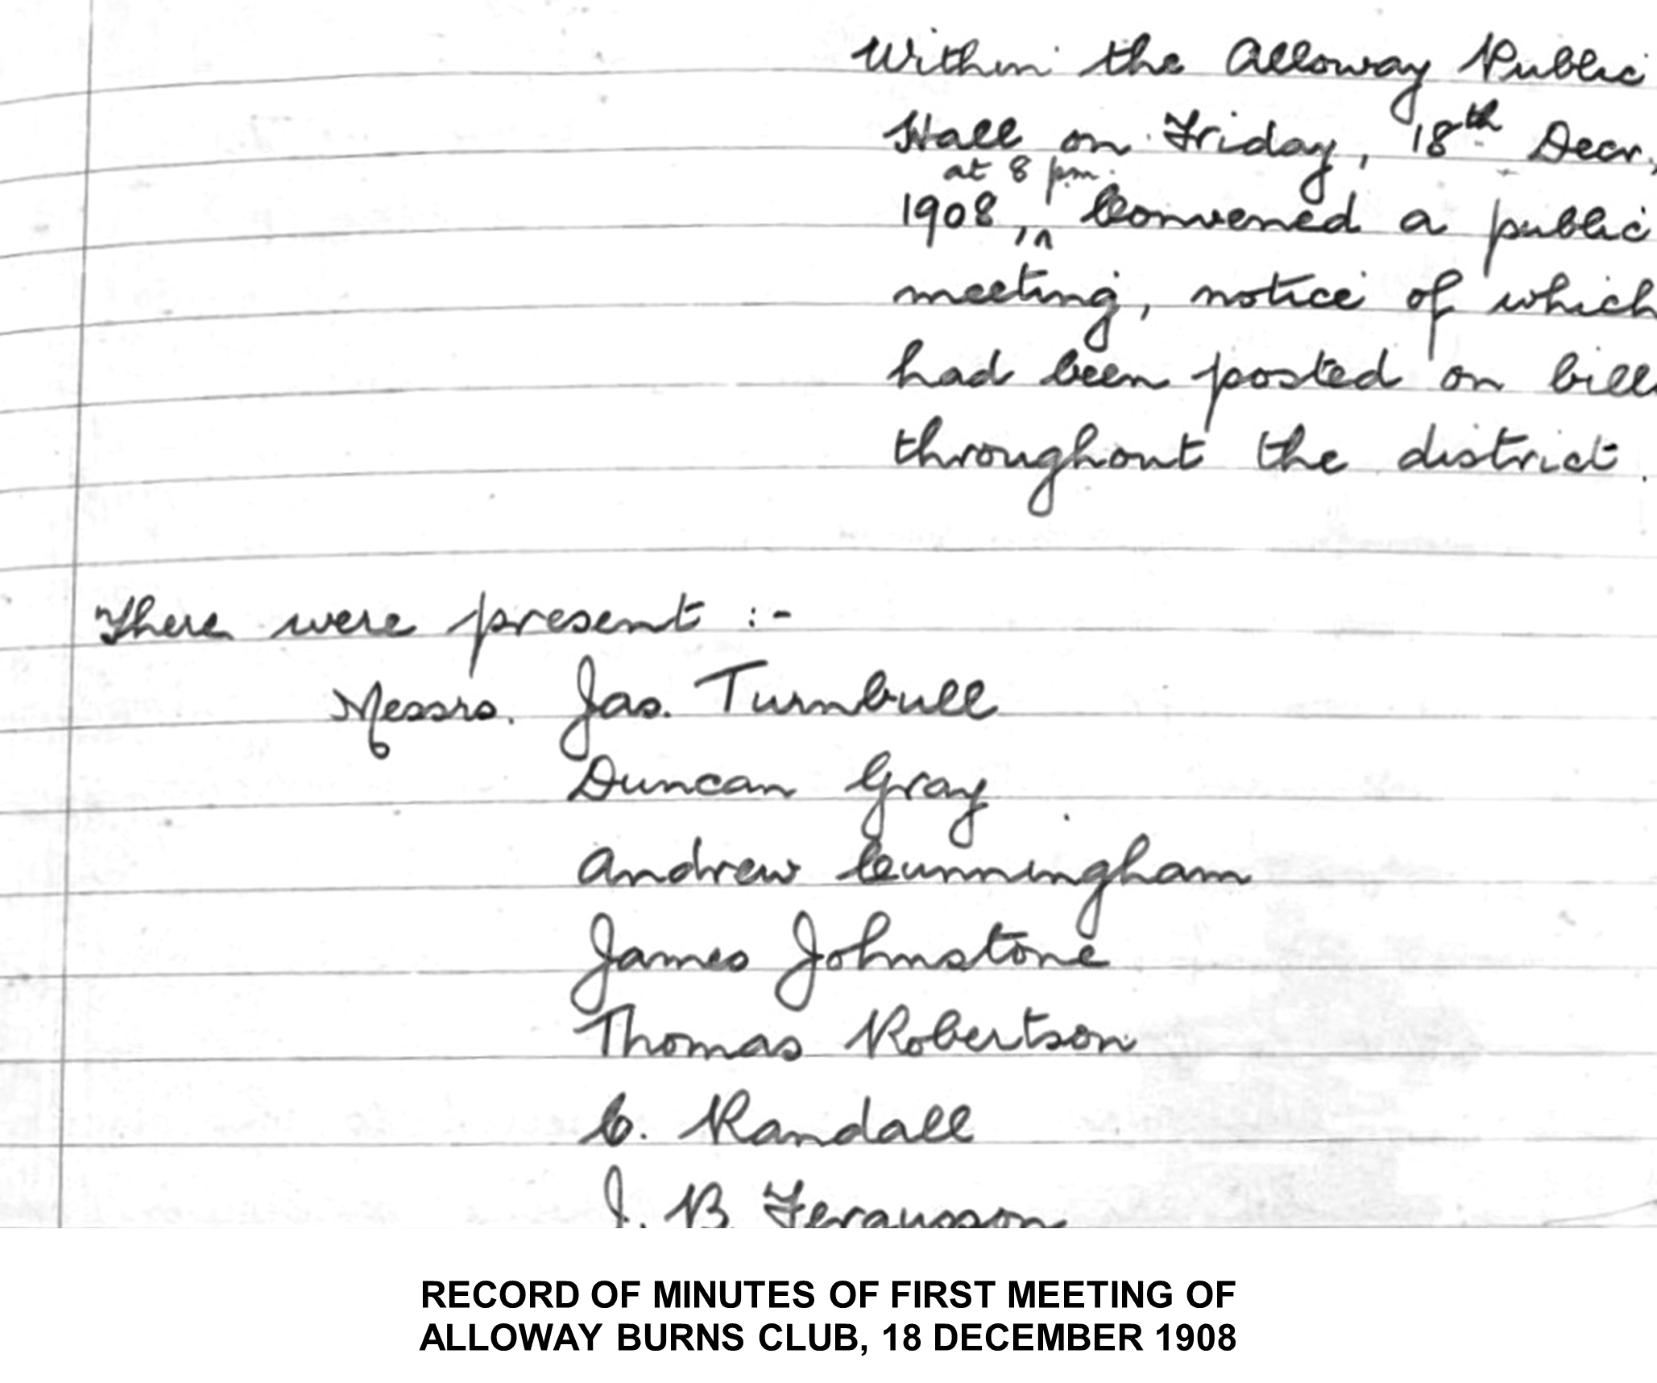 Within the Alloway Public
Hall on Friday, 18th Decr,
at 8 pm.
1908, Convened a public
meeting, notice of which
had been posted on bills
throughout the district.
There were present :-
Messrs. Jas. Turnbull
Duncan Gray
Andrew Cunningham
James Johnstone
Thomas Robertson
C. Randall
J. B. Fergusson
RECORD OF MINUTES OF FIRST MEETING OF
ALLOWAY BURNS CLUB, 18 DECEMBER 1908